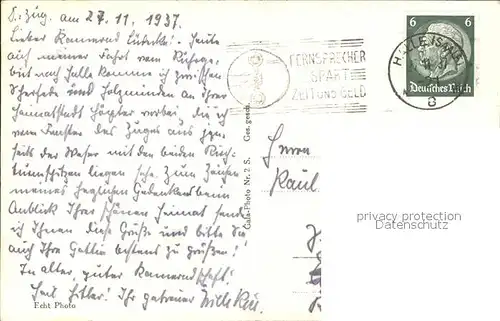 D.-Zug. am 27.11.1937.
Lieber Kamerad! Heute
auf meiner Fahrt vom
bis nach Halle komme ich zwischen
und Holzminden an Ihrer
Heimatstadt Höxter vorbei, die ich
vom Fenster des Zuges aus
seits der Weser mit den beiden
liegen sehe. Zum Zeichen
meines herzlichen Gedenkens beim
Anblick Ihrer schönen Heimat sende
ich Ihnen diese Grüße und bitte Sie
auch Ihre Gattin bestens zu grüßen!
In alter, guter Kameradschaft!
Heil Hitler! Ihr getreuer
Echt Photo
Gala-Photo Nr. 2 S. Ges. gesch.
FERNSPRECHER
SPART
ZEIT UND GELD
HALLE (SAALE)
6 6
Deutsches Reich
Herrn
Paul
privacy protection
Datenschutz